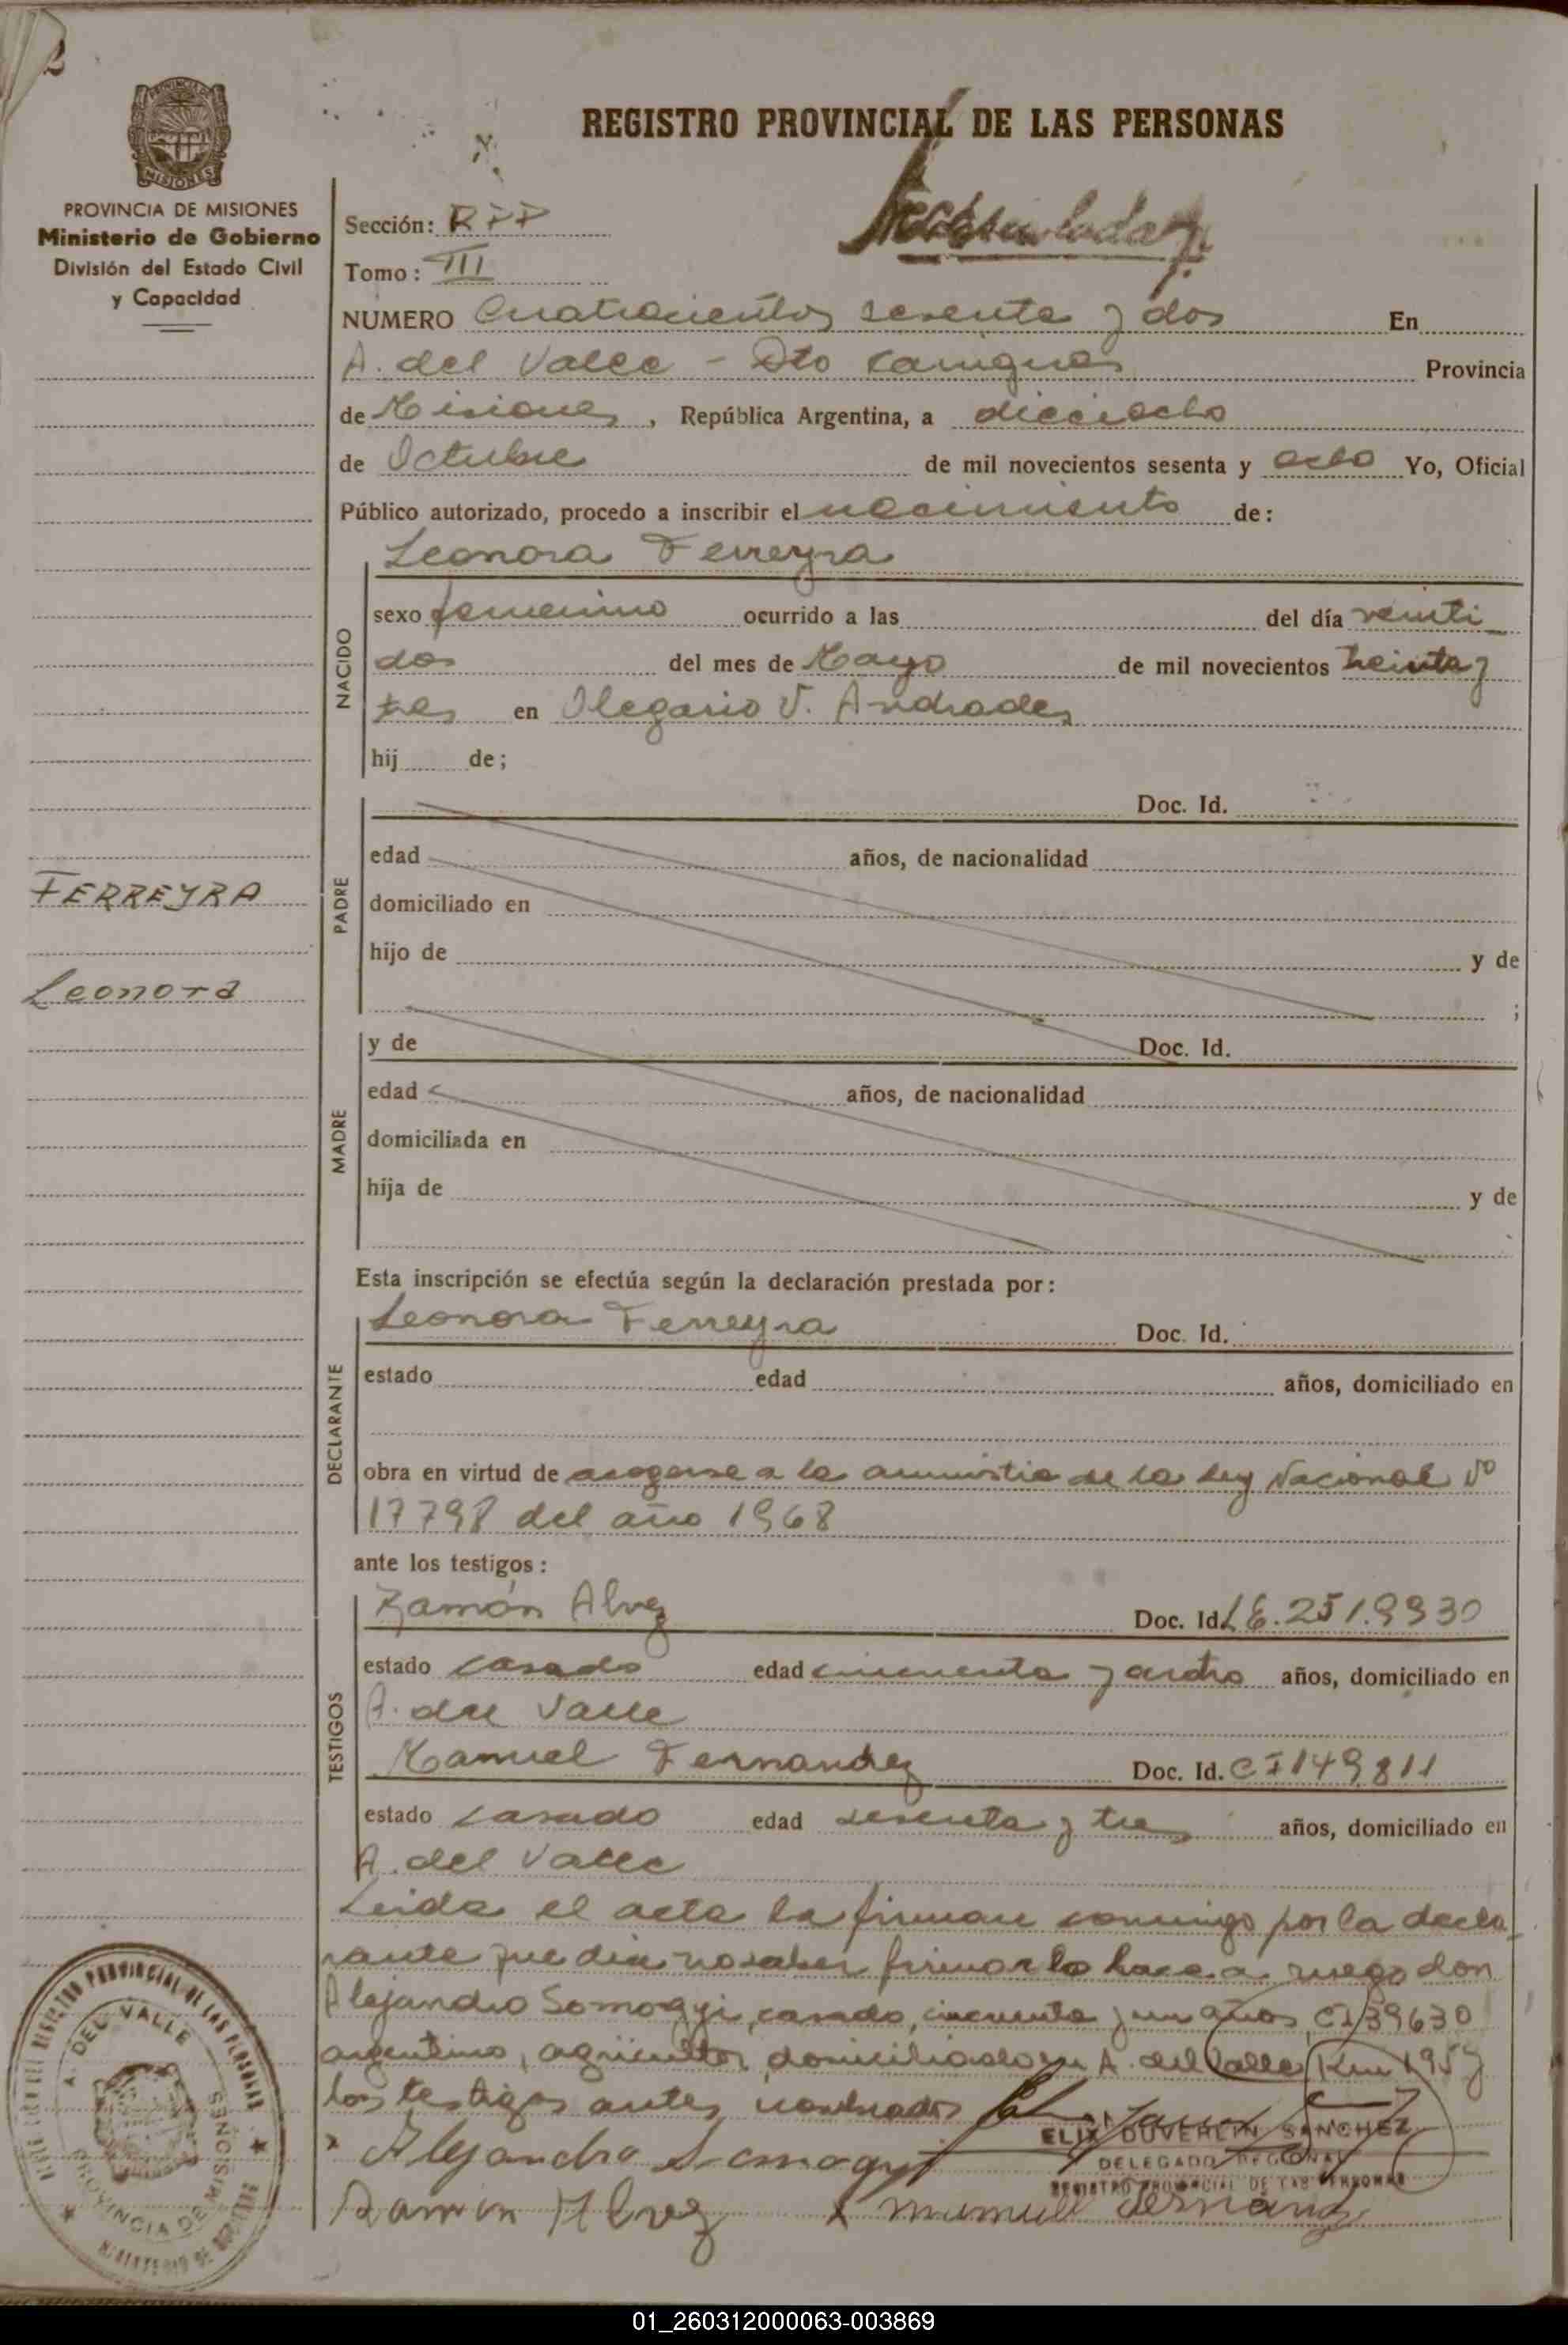 REGISTRO PROVINCIAL DE LAS PERSONAS
PROVINCIA DE MISIONES
Ministerio de Gobierno
División del Estado Civil
y Capacidad
Sección: RPP
Tomo: III
NUMERO Cuatrocientos sesenta y dos En
A. del Valle - Dto Cainguás Provincia
de Misiones, República Argentina, a dieciocho
de Octubre de mil novecientos sesenta y ocho Yo, Oficial
Público autorizado, procedo a inscribir el nacimiento de:
Leonora Ferreyra
NACIDO
sexo femenino ocurrido a las del día veinti
dos del mes de Mayo de mil novecientos treinta y
tres en Olegario V. Andrades
hij de;
PADRE
Doc. Id.
edad años, de nacionalidad
domiciliado en
hijo de y de
;
FERREYRA
Leonora
MADRE
y de Doc. Id.
edad años, de nacionalidad
domiciliada en
hija de y de
Esta inscripción se efectúa según la declaración prestada por:
DECLARANTE
Leonora Ferreyra Doc. Id.
estado edad años, domiciliado en
obra en virtud de acogerse a la amnistia de la Ley Nacional Nº
17798 del año 1968
ante los testigos:
TESTIGOS
Ramón Alvez Doc. Id. L.E. 2519930
estado casado edad cincuenta y cuatro años, domiciliado en
A. del Valle
Manuel Fernandez Doc. Id. CI 149811
estado casado edad sesenta y tres años, domiciliado en
A. del Valle
Leida el acta la firman conmigo por la decla-
rante que dice no saber firmar lo hace a ruego don
Alejandro Somogyi, casado, cincuenta y un años, CI 39630
argentino, agricultor, domiciliado en A. del Valle Km 195 y
los testigos antes nombrados
ELIX DUVERLIN SANCHEZ
DELEGADO REGIONAL
REGISTRO PROVINCIAL DE LAS PERSONAS
Alejandro Somogyi
Ramon Alvez x Manuel Fernandez
REGISTRO PROVINCIAL DE LAS PERSONAS
A. DEL VALLE
PROVINCIA DE MISIONES
MINISTERIO DE GOBIERNO
01_260312000063-003869